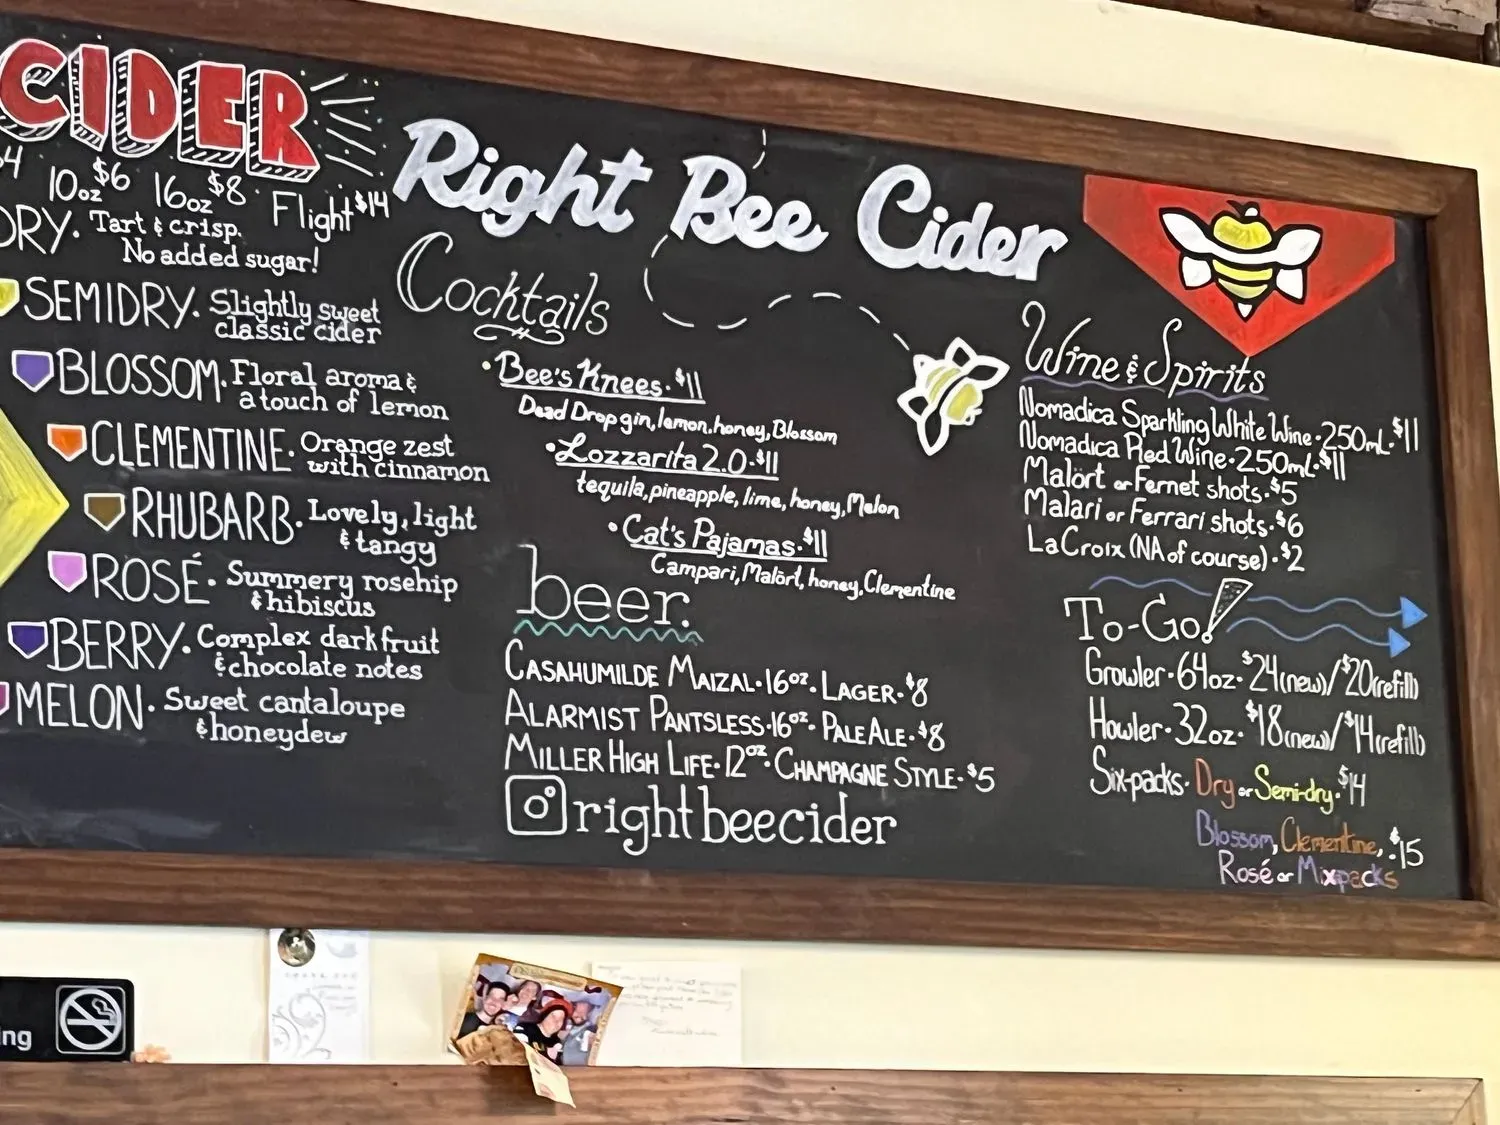 CIDER
4 10oz $6 16oz $8 Flight $14
DRY. Tart & crisp.
No added sugar!
SEMIDRY. Slightly sweet
classic cider
BLOSSOM. Floral aroma &
a touch of lemon
CLEMENTINE. Orange zest
with cinnamon
RHUBARB. Lovely, light
& tangy
ROSÉ. Summery rosehip
& hibiscus
BERRY. Complex dark fruit
& chocolate notes
MELON. Sweet cantaloupe
& honeydew
Right Bee Cider
Cocktails
• Bee's Knees. $11
Dead Drop gin, lemon, honey, Blossom
• Lozzarita 2.0. $11
tequila, pineapple, lime, honey, Melon
• Cat's Pajamas. $11
Campari, Malört, honey, Clementine
beer.
CASAHUMILDE MAIZAL. 16oz. LAGER. $8
ALARMIST PANTSLESS. 16oz. PALE ALE. $8
MILLER HIGH LIFE. 12oz. CHAMPAGNE STYLE. $5
rightbeecider
Wine & Spirits
Nomadica Sparkling White Wine. 250mL. $11
Nomadica Red Wine. 250mL. $11
Malört or Fernet shots. $5
Malari or Ferrari shots. $6
LaCroix (NA of course). $2
To-Go!
Growler. 64oz. $24 (new) / $20 (refill)
Howler. 32oz. $18 (new) / $14 (refill)
Six-packs. Dry or Semi-dry. $14
Blossom, Clementine,
Rosé or Mixpacks. $15
ng